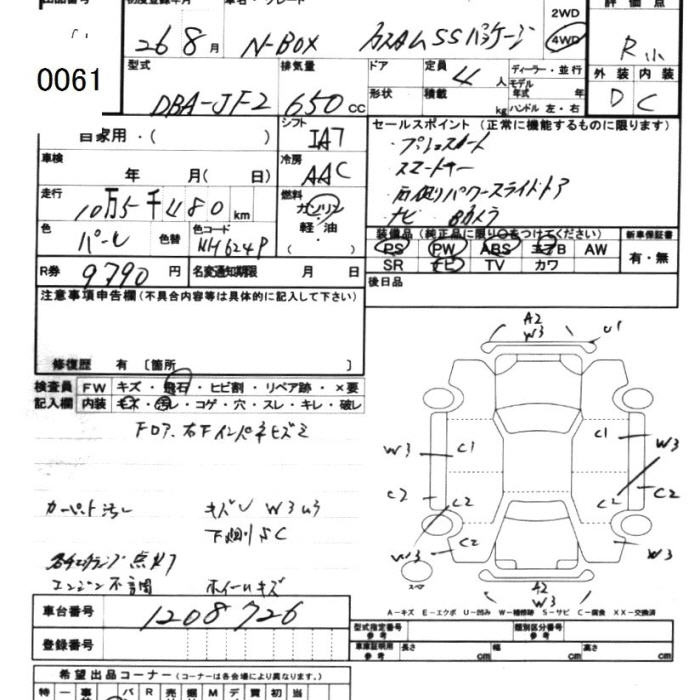 出品番号 初度登録年月 車名・グレード 評価点
0061
26 8月 N-BOX カスタム SSパッケージ 2WD 4WD R
型式 排気量 ドア 定員 ディーラー・並行 外装 内装
DBA-JF2 650 CC 4人 モデル年式 年 D C
形状 積載 kg ハンドル 左・右
自家用・( ) シフト IA7 セールスポイント(正常に機能するものに限ります)
・プッシュスタート
車検 年 月( 日) 冷房 AAC ・スマートキー
走行 10万5千480km 燃料 ガソリン・軽・油・( ) ・パワースライドドア
ナビ Bカメラ
色 パール 色替 色コード NH624P
装備品(純正品に限り〇をつけてください) 新車保証書
PS PW ABS エアB AW 有・無
SR ナビ TV カワ
R券 9790円 名変通知期限 月 日
後日品
注意事項申告欄(不具合内容等は具体的に記入して下さい)
修復歴 有〔箇所 〕
検査員記入欄 FW キズ・飛石・ヒビ割・リペア跡・×要
内装 キズ・汚レ・コゲ・穴・スレ・キレ・破レ
A2
W3 U1
W3 C1 C1 W3
C2 C2 C2 C2
W3 C2 W3
スペア
A2
W3
カーペット汚レ キズU W3U3
下廻りSC
点灯
エンジン不調 ホイールキズ
A-キズ E-エクボ U-凹み W-補修跡 S-サビ C-腐食 XX-交換済
車台番号 1208726
登録番号
型式指定番号 参考 類別区分番号 参考
車庫証明用 参考 長さ cm 幅 cm 高さ cm
希望出品コーナー(コーナーは各会場により異なります。)
特 一 事 バ R 売 M デ 買 初 当